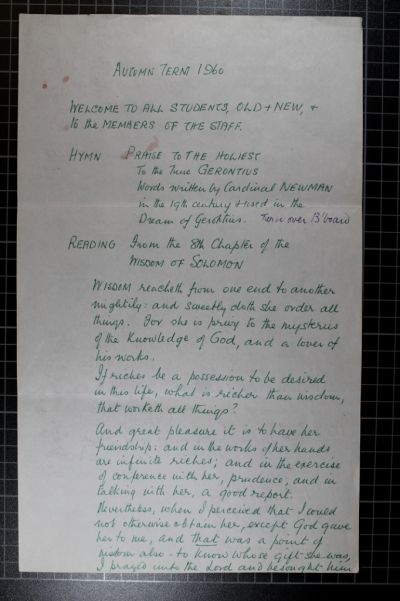 AUTUMN TERM 1960
WELCOME TO ALL STUDENTS, OLD + NEW, +
to the MEMBERS OF THE STAFF.
HYMN PRAISE TO THE HOLIEST
To the Tune GERONTIUS
Words written by Cardinal NEWMAN
in the 19th century + used in the
Dream of Gerontius. Turn over B'board
READING From the 8th Chapter of the
WISDOM OF SOLOMON
WISDOM reacheth from one end to another
mightily: and sweetly doth she order all
things. For she is privy to the mysteries
of the Knowledge of God, and a lover of
his works.
If riches be a possession to be desired
in this life, what is richer than wisdom,
that worketh all things?
And great pleasure it is to have her
friendship: and in the works of her hands
are infinite riches; and in the exercise
of conference with her, prudence; and in
talking with her, a good report.
Nevertheless, when I perceived that I could
not otherwise obtain her, except God gave
her to me, and that was a point of
wisdom also - to know whose gift she was,
I prayed unto the Lord and besought him